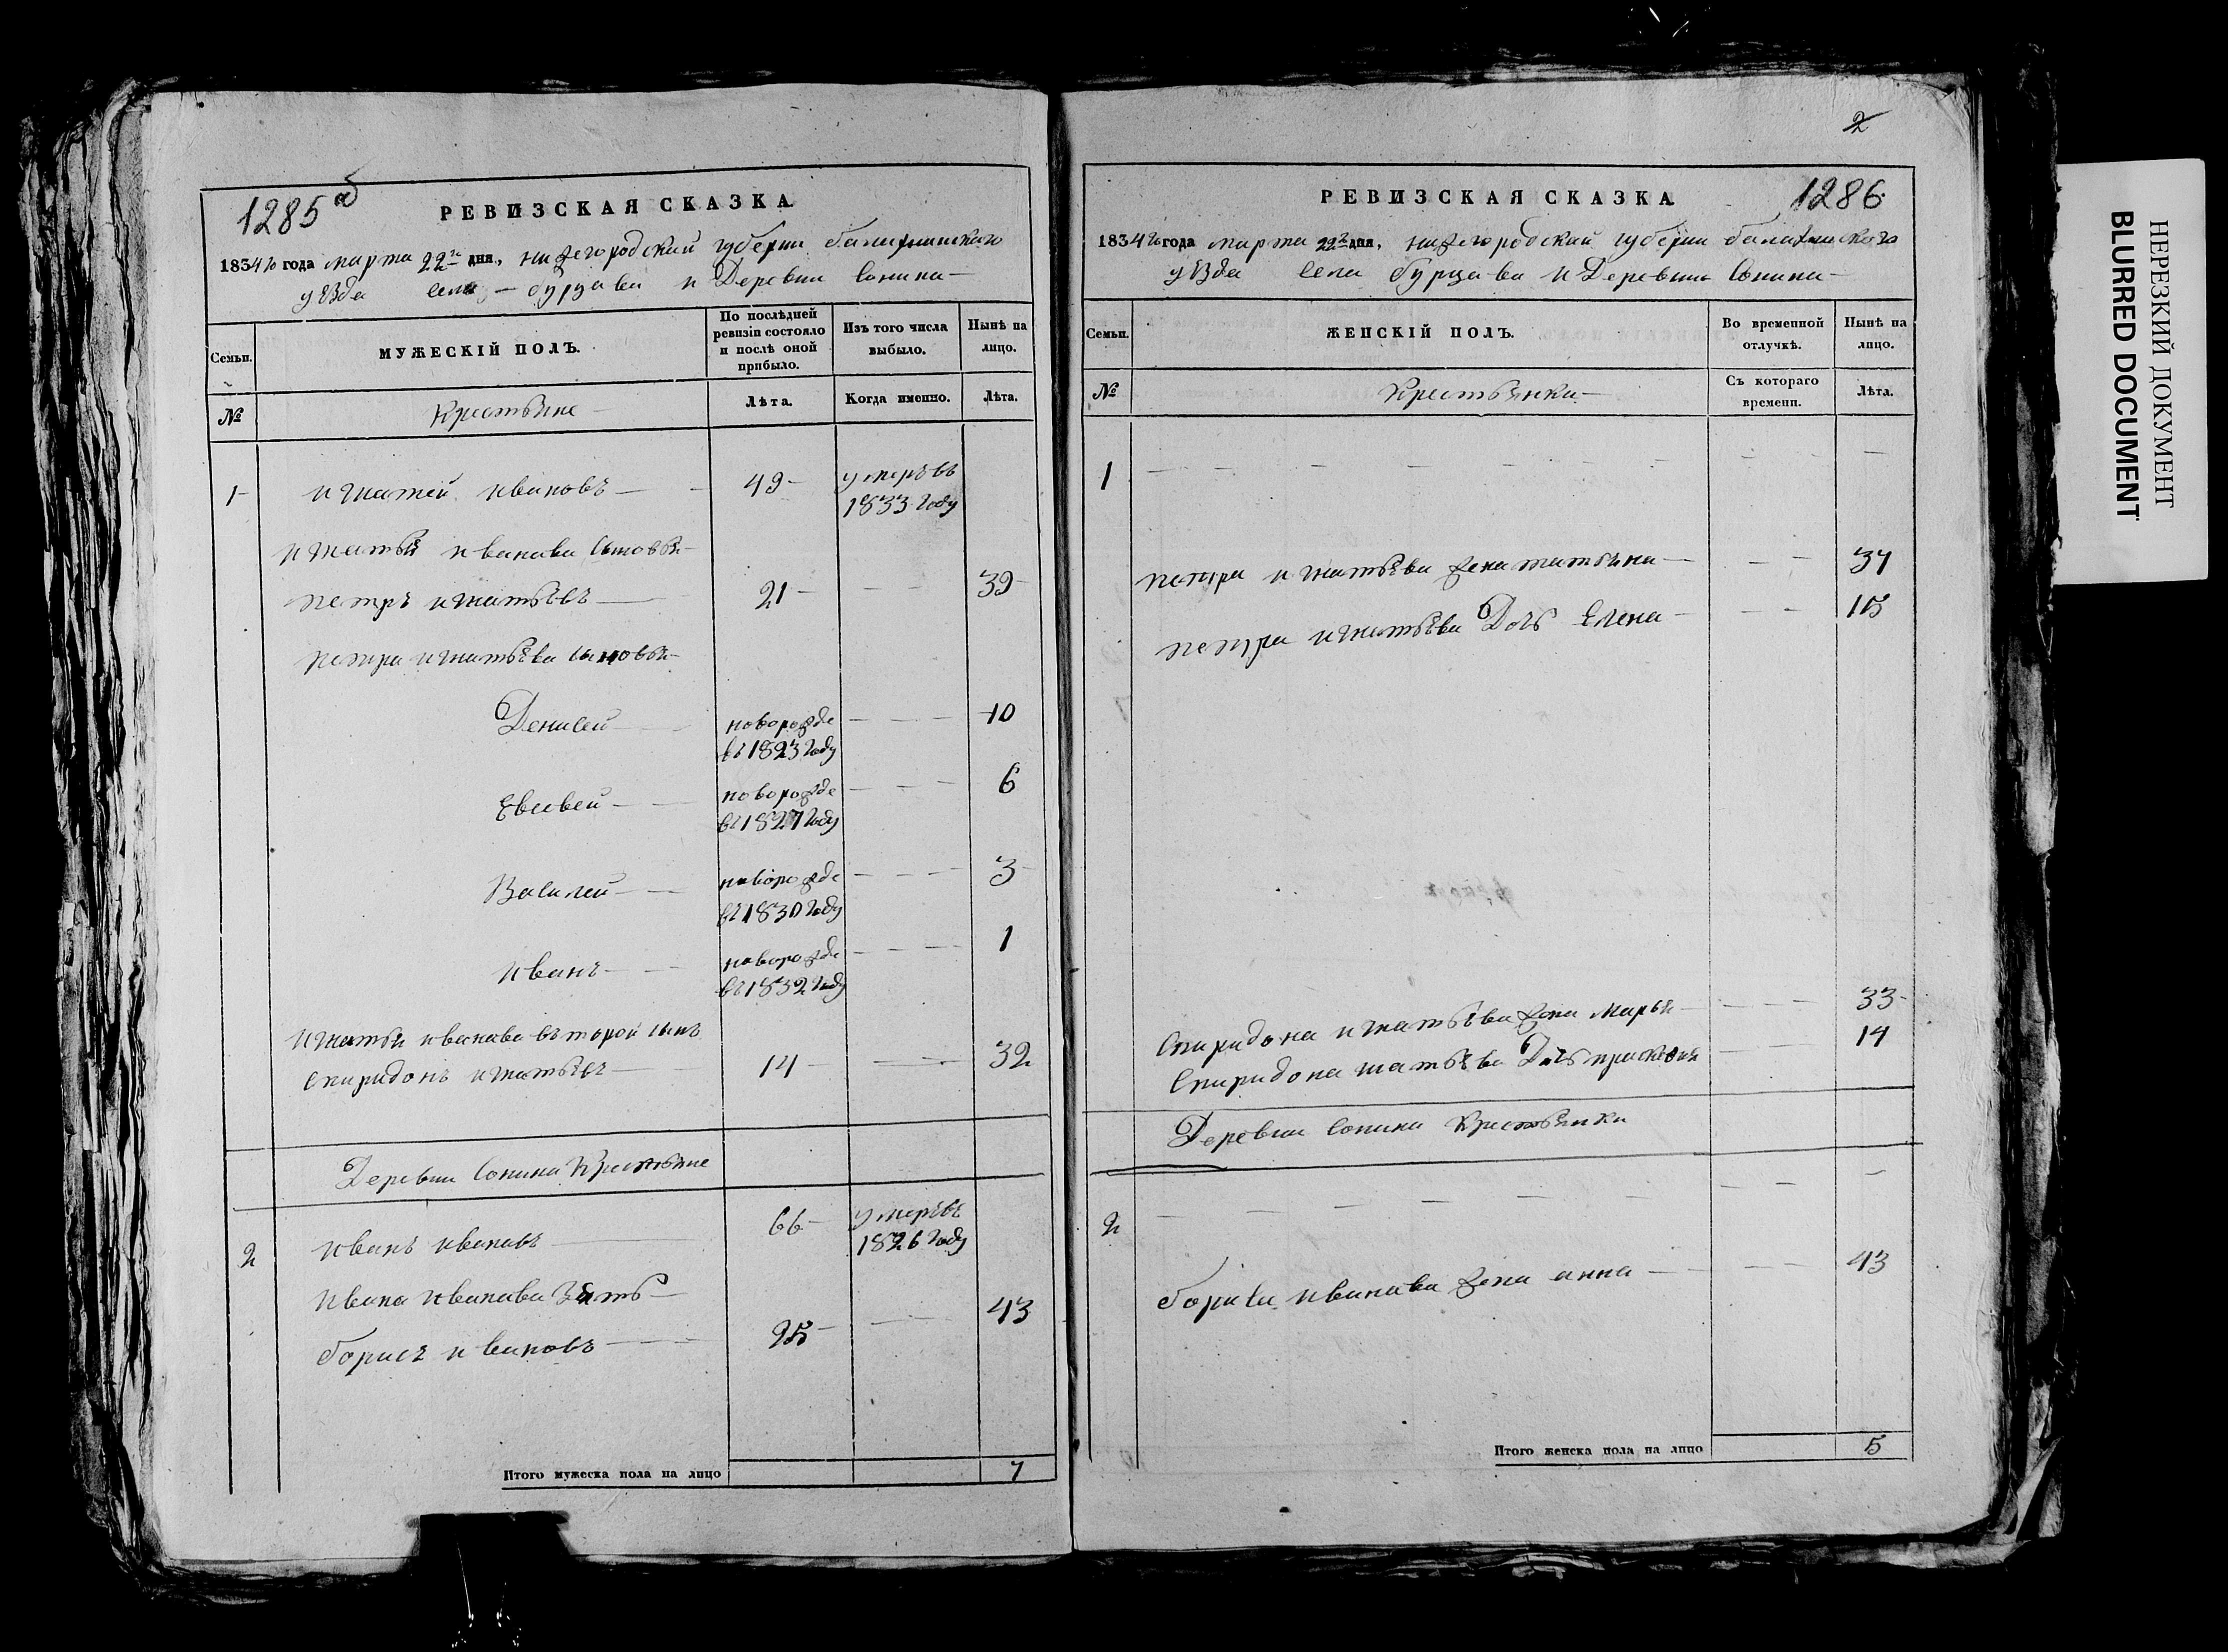 1285 об
РЕВИЗСКАЯ СКАЗКА
1834го года марта 22го дня, нижегородский губернии балахнинскаго
уезда села — бурцава и Деревни Сонина —
Семьи.
МУЖЕСКІЙ ПОЛЪ.
По послѣдней
ревизіи состояло
и послѣ оной
прибыло.
Изъ того числа
выбыло.
Нынѣ на
лицо.
№
Крестьяне —
Лѣта.
Когда именно.
Лѣта.
1 — игнатей ивановъ — 49 — умеръ въ
1833 году
игнатья иванова сыновья —
петръ игнатьевъ — 21 — — — 39 —
петра игнатьева сыновья —
Денисей — новорожде — — — 10
въ 1823 году
Евсевей — новорожде — — — 6
въ 1827 году
Василей — новорожде — — — 3
въ 1830 году
иванъ — новорожде — — — 1
въ 1832 году
игнатья иванава въторой сынъ
спиридонъ игнатьевъ — 14 — — — 32
Деревни Сонина Крестьяне
2 иванъ иванавъ — 66 — умеръ въ
1826 году
ивана иванава Зять —
борисъ ивановъ — 25 — — — 43
Итого мужеска пола на лицо 7
2
РЕВИЗСКАЯ СКАЗКА
1286
1834го года марта 22го дня, нижегородский губернии балахнискаго
уезда села бурцава и Деревни Сонина —
Семьи.
ЖЕНСКІЙ ПОЛЪ.
Во временной
отлучкѣ.
Нынѣ на
лицо.
№
Крестьянки —
Съ котораго
времени.
Лѣта.
1 — — — — — — — — —
петра игнатьева жена татьяна — — — 37
петра игнатьева Дочь Елена — — — 15
спиридона игнатьева жена марья — — — 33 —
спиридона гнатьева Дочь праскевия — — — 14
Деревни Сонина Крестьянки
2 — — — — — — — —
бориса иванава жена анна — — — 43
Итого женска пола на лицо 5
НЕРЕЗКИЙ ДОКУМЕНТ
BLURRED DOCUMENT